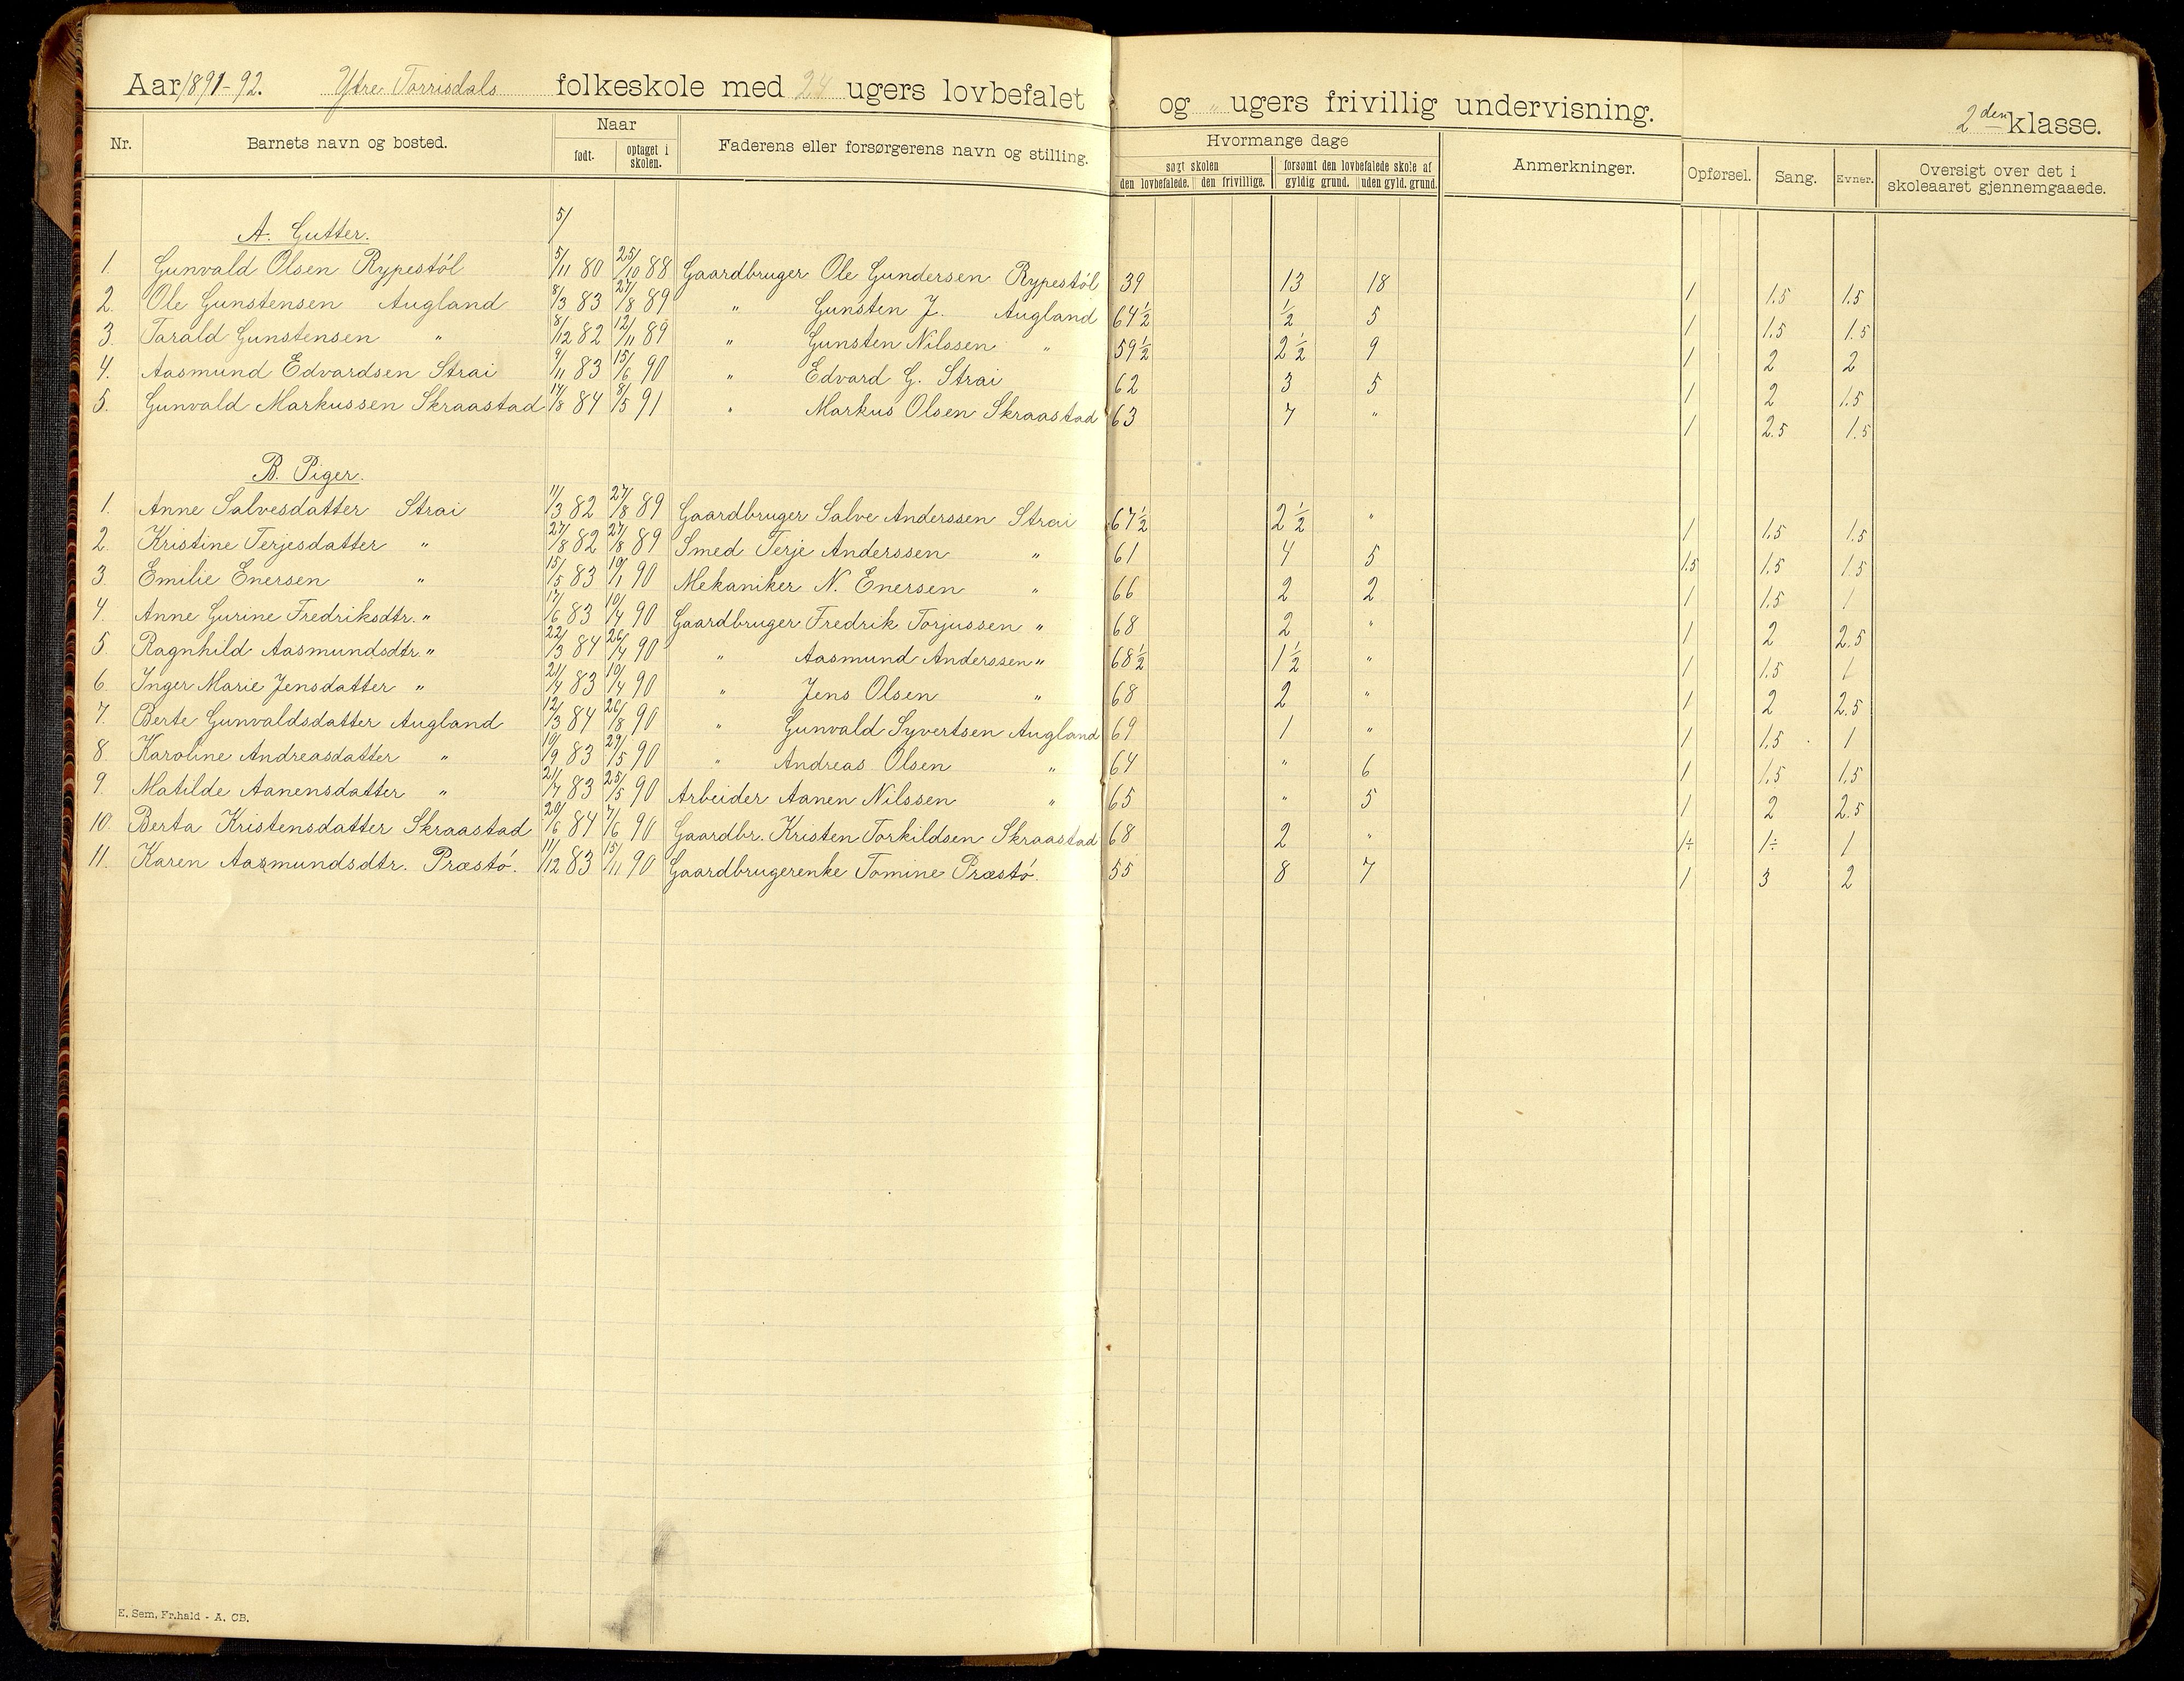 Aar 1891-92. Ytre Torrisdals folkeskole med 24 ugers lovbefalet og " ugers frivillig undervisning. 2den klasse.
Nr. Barnets navn og bosted. Naar Faderens eller forsørgerens navn og stilling. Hvormange dage Anmerkninger. Opførsel. Sang. Evner. Oversigt over det i skoleaaret gjennemgaaede.
født. optaget i skolen. søgt skolen forsømt den lovbefalede skole af
den lovbefalede. den frivillige. gyldig grund. uden gyld. grund.
A. Gutter. 5/
1. Gunvald Olsen Rypestöl 5/11 80 25/10 88 Gaardbruger Ole Gundersen Rypestöl 39 13 18 1 1.5 1.5
2. Ole Gunstensen Augland 8/3 83 27/8 89 " Gunsten J. Augland 64½ ½ 5 1 1.5 1.5
3. Tarald Gunstensen " 8/12 82 12/11 89 " Gunsten Nilssen " 59½ 2½ 9 1 2 2
4. Aasmund Edvardsen Strai 9/11 83 15/6 90 " Edvard G. Strai 62 3 5 1 2 1.5
5. Gunvald Markussen Skraastad 14/8 84 8/5 91 " Markus Olsen Skraastad 63 7 " 1 2.5 1.5
B. Piger.
1. Anne Salvesdatter Strai 11/3 82 27/8 89 Gaardbruger Salve Anderssen Strai 67½ 2½ " 1 1.5 1.5
2. Kristine Terjesdatter " 27/8 82 27/8 89 Smed Terje Anderssen " 61 4 5 1.5 1.5 1.5
3. Emilie Enersen " 15/5 83 19/1 90 Mekaniker N. Enersen " 66 2 2 1 1.5 1
4. Anne Gurine Fredriksdtr. " 17/6 83 10/4 90 Gaardbruger Fredrik Torjussen " 68 2 " 1 2 2.5
5. Ragnhild Aasmundsdtr " 22/3 84 26/4 90 " Aasmund Anderssen " 68½ 1½ " 1 1.5 1
6. Inger Marie Jensdatter " 21/4 83 10/4 90 " Jens Olsen " 68 2 " 1 2 2.5
7. Berte Gunvaldsdatter Augland 12/3 84 26/8 90 " Gunvald Syvertsen Augland 69 1 " 1 1.5 1
8. Karoline Andreasdatter " 19/9 83 29/5 90 " Andreas Olsen " 64 " 6 1 1.5 1.5
9. Matilde Aanensdatter " 21/7 83 25/5 90 Arbeider Aanen Nilssen " 65 " 5 1 2 2.5
10. Berta Kristensdatter Skraastad 20/6 84 7/6 90 Gaardbr. Kristen Torkildsen Skraastad 68 2 " 1÷ 1÷ 1
11. Karen Aasmundsdtr. Præstö. 11/12 83 15/11 90 Gaardbrugerenke Tomine Præstö. 55 8 7 1 3 2
E. Sem, Fr.hald - A. CB.